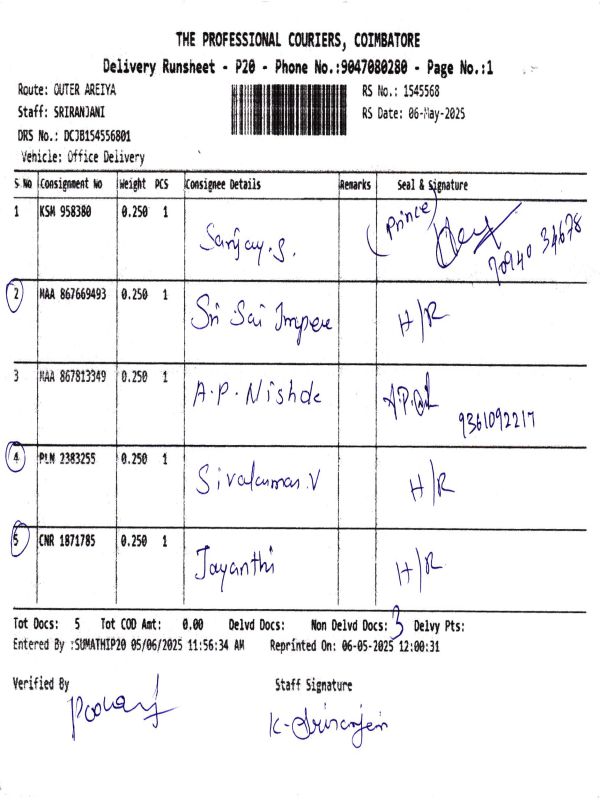 THE PROFESSIONAL COURIERS, COIMBATORE
Delivery Runsheet - P20 - Phone No.:9047080280 - Page No.:1
Route: OUTER AREIYA RS No.: 1545568
Staff: SRIRANJANI RS Date: 06-May-2025
DRS No.: DCJB154556801
Vehicle: Office Delivery
S No Consignment No Weight PCS Consignee Details Remarks Seal & Signature
1 KSM 958380 0.250 1 Sanjay.S. (Prince) 70940 34678
2 MAA 867669493 0.250 1 Sri Sai Impex H/R
3 MAA 867813349 0.250 1 A.P. Nishde 9361092217
4 PLN 2383255 0.250 1 Sivakumar.V H/R
5 CNR 1871785 0.250 1 Jayanthi H/R
Tot Docs: 5 Tot COD Amt: 0.00 Delvd Docs: Non Delvd Docs: 3 Delvy Pts:
Entered By :SUMATHIP20 05/06/2025 11:56:34 AM Reprinted On: 06-05-2025 12:00:31
Verified By Staff Signature